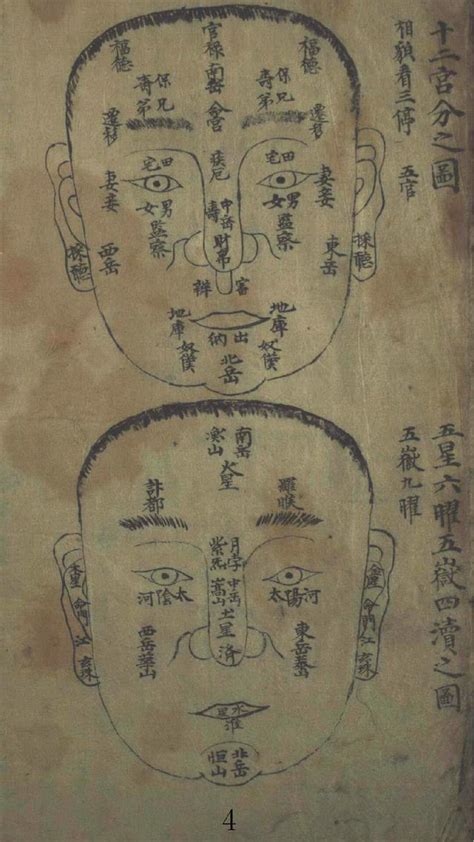 十二宮分之圖
相貌看三停 五官
福德
官祿
南岳
命宮
福德
保兄
壽弟
保兄
壽弟
遷移
遷移
疾厄
田宅
田宅
妻妾
妻妾
男女
男女
中岳
壽
監察
監察
財帛
採聽
採聽
東岳
西岳
地庫
地庫
出納
奴僕
奴僕
北岳
五星六曜五嶽四瀆之圖
五嶽九曜
南岳
火星
羅睺
計都
月孛
中岳
嵩山
土星
濟
太陽
河
太陰
河
金星
命門
江
命門
江
西岳華山
水星
淮
北岳
恒山
4